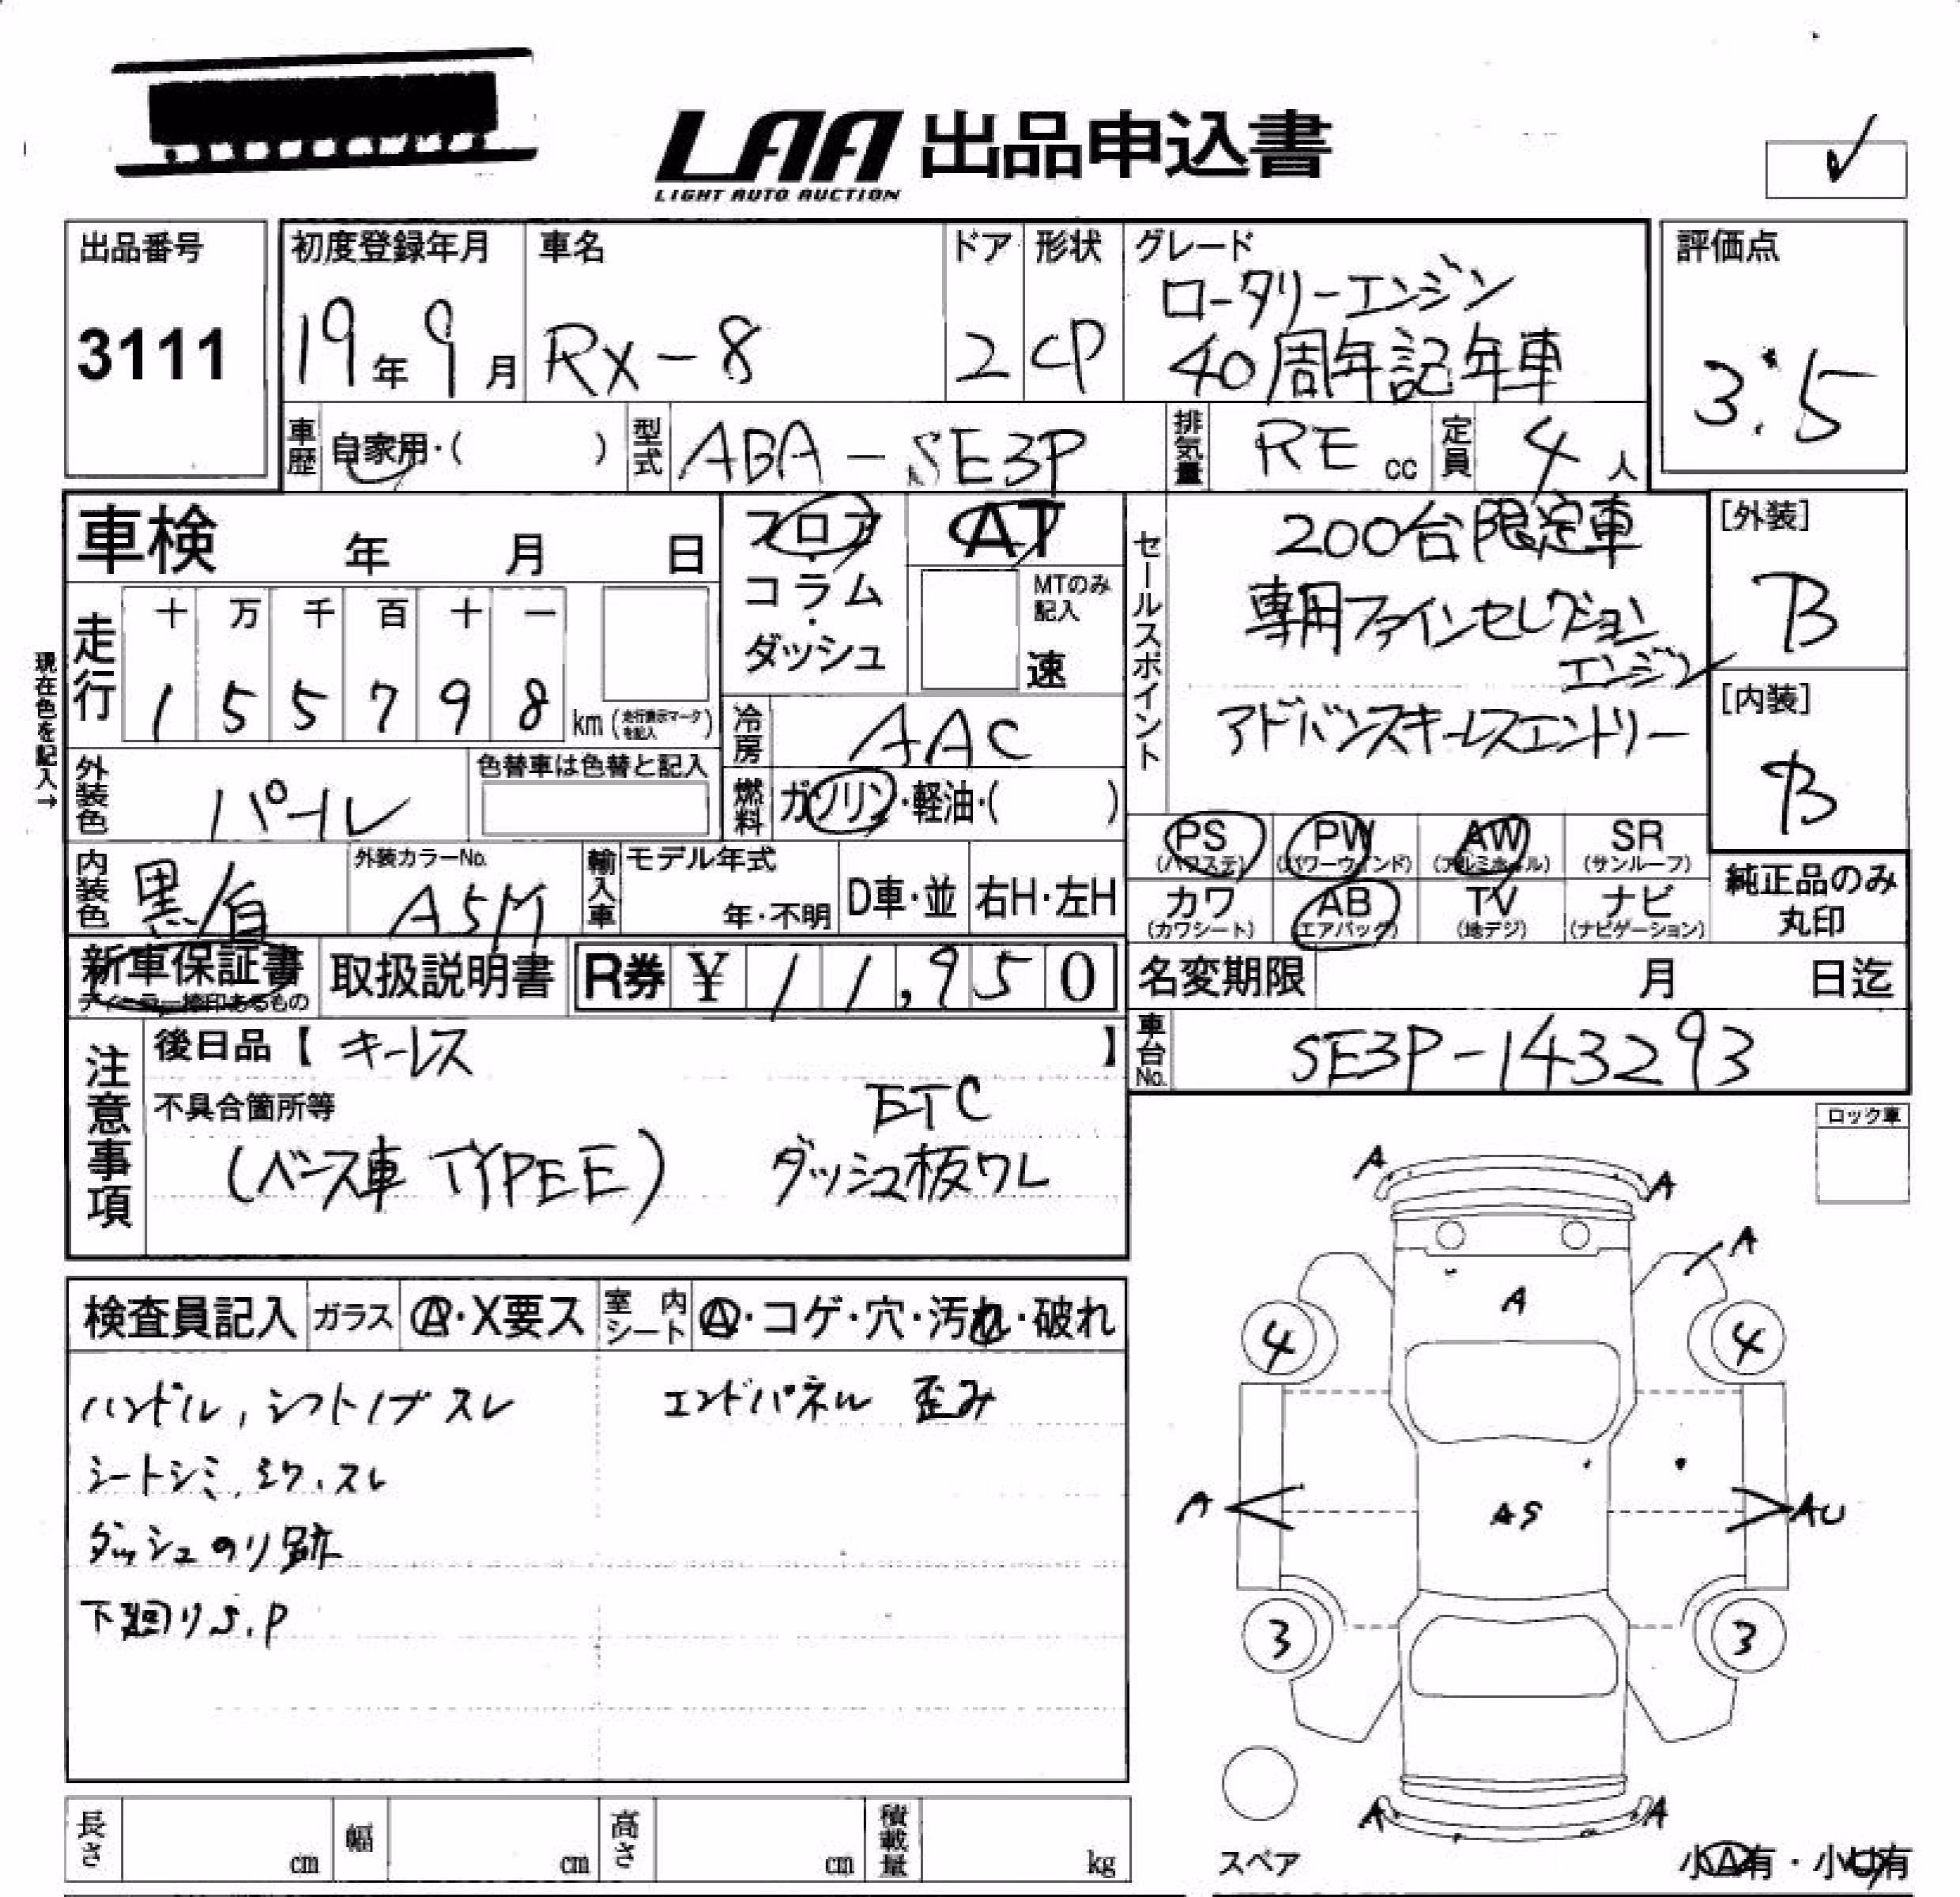 LAA 出品申込書
LIGHT AUTO AUCTION
✓
出品番号
3111
初度登録年月
19年9月
車名
RX-8
ドア
2
形状
CP
グレード
ロータリーエンジン
40周年記年車
評価点
3.5
車歴 自家用・( )
型式 ABA-SE3P
排気量 RE cc
定員 4人
車検 年 月 日
走行
十 万 千 百 十 一
1 5 5 7 9 8 km (走行表示マークを記入)
現在色を記入→
フロア・コラム・ダッシュ
AT
MTのみ記入
速
冷房 AAC
燃料 ガソリン・軽油・( )
セールスポイント
200台限定車
専用ファインセレクション
エンジン
アドバンスキーレスエントリー
[外装]
B
[内装]
B
外装色 パール
色替車は色替と記入
内装色 黒/白
外装カラーNo.
A5M
輸入車
モデル年式
年・不明
D車・並
右H・左H
PS
(パワステ)
PW
(パワーウィンド)
AW
(アルミホイル)
SR
(サンルーフ)
カワ
(カワシート)
AB
(エアバック)
TV
(地デジ)
ナビ
(ナビゲーション)
純正品のみ
丸印
新車保証書
ディーラー捺印あるもの
取扱説明書
R券 ¥ 11,950
名変期限 月 日迄
車台No. SE3P-143293
注意事項
後日品【 キーレス 】
不具合箇所等
ETC
(ベース車 TYPE E) ダッシュ板ワレ
ロック車
検査員記入
ガラス A・X要ス
室内シート A・コゲ・穴・汚れ・破れ
ハンドル, シフトノブ スレ
エンドパネル 歪み
シートシミ, シワ, スレ
ダッシュのり跡
下廻りS.P
A A
A
A
4 4
A AS AU
3 3
A A
スペア
小A有・小U有
長さ cm
幅 cm
高さ cm
積載量 kg